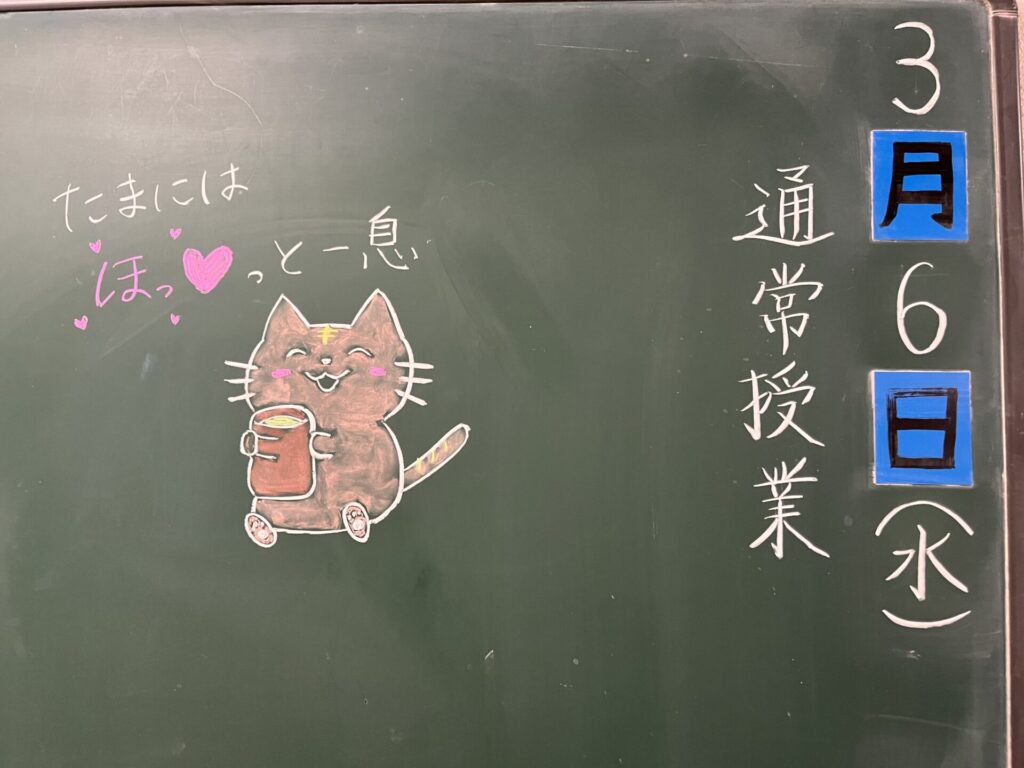 3月6日(水)
通常授業
たまには
ほっ♥っと一息